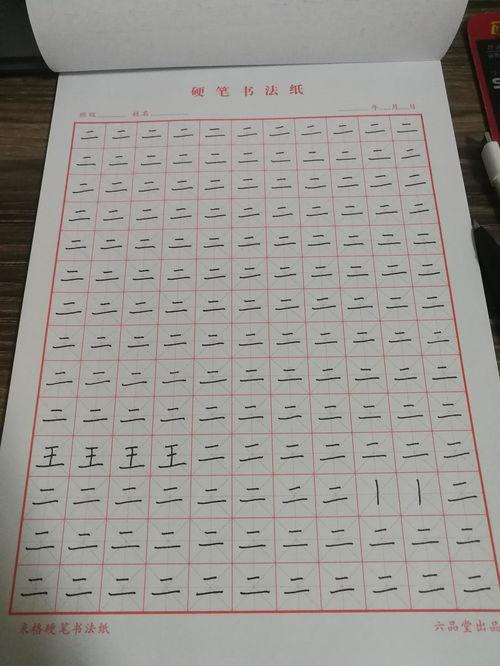 硬笔书法纸
班级 姓名 年 月 日
二二二二二二二二二二二
二二二二二二二二二二二
二二二二二二二二二二二
二二二二二二二二二二二
二二二二二二二二二二二
二二二二二二二二二二二
二二二二二二二二二二二
二二二二二二二二二二二
二二二二二二二二二二二
二二二二二二二二二二二
王王王王二二二二二二二
二二二二二二二二丨丨二
二二二二二二二二二二二
二二二二二二二二二二二
米格硬笔书法纸 六品堂出品